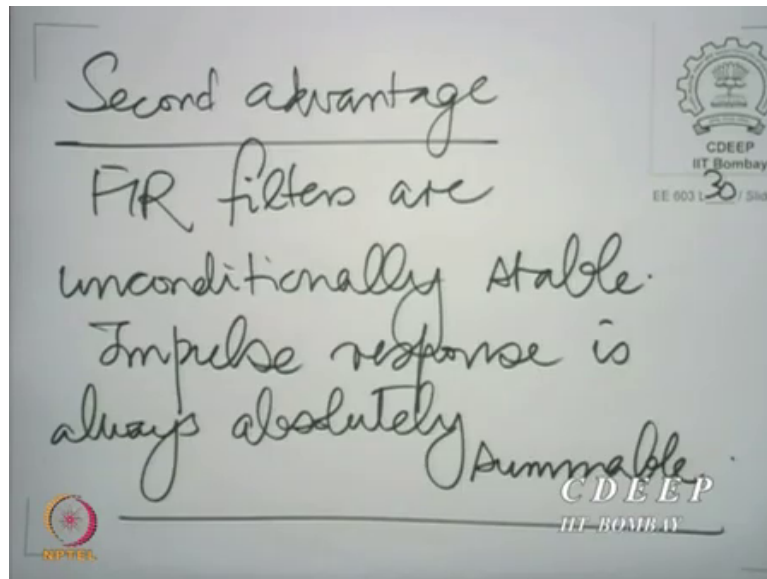 Second advantage
FIR filters are
unconditionally stable.
Impulse response is
always absolutely
summable.
CDEEP
IIT Bombay
EE 603 L 30 / Slid
CDEEP
IIT BOMBAY
NPTEL